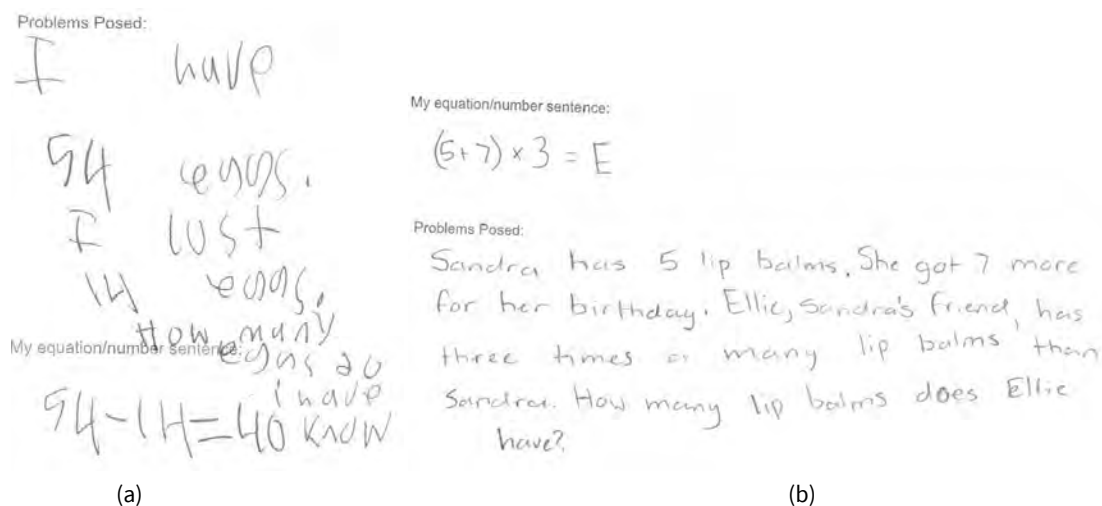 Problems Posed:
I have
54 eggs.
I lost
14 eggs.
How many
eggs do
i have
know
My equation/number sentence:
54-14=40
(a)
My equation/number sentence:
(5+7) × 3 = E
Problems Posed:
Sandra has 5 lip balms. She got 7 more
for her birthday. Ellie, Sandra's friend, has
three times as many lip balms than
Sandra. How many lip balms does Ellie
have?
(b)